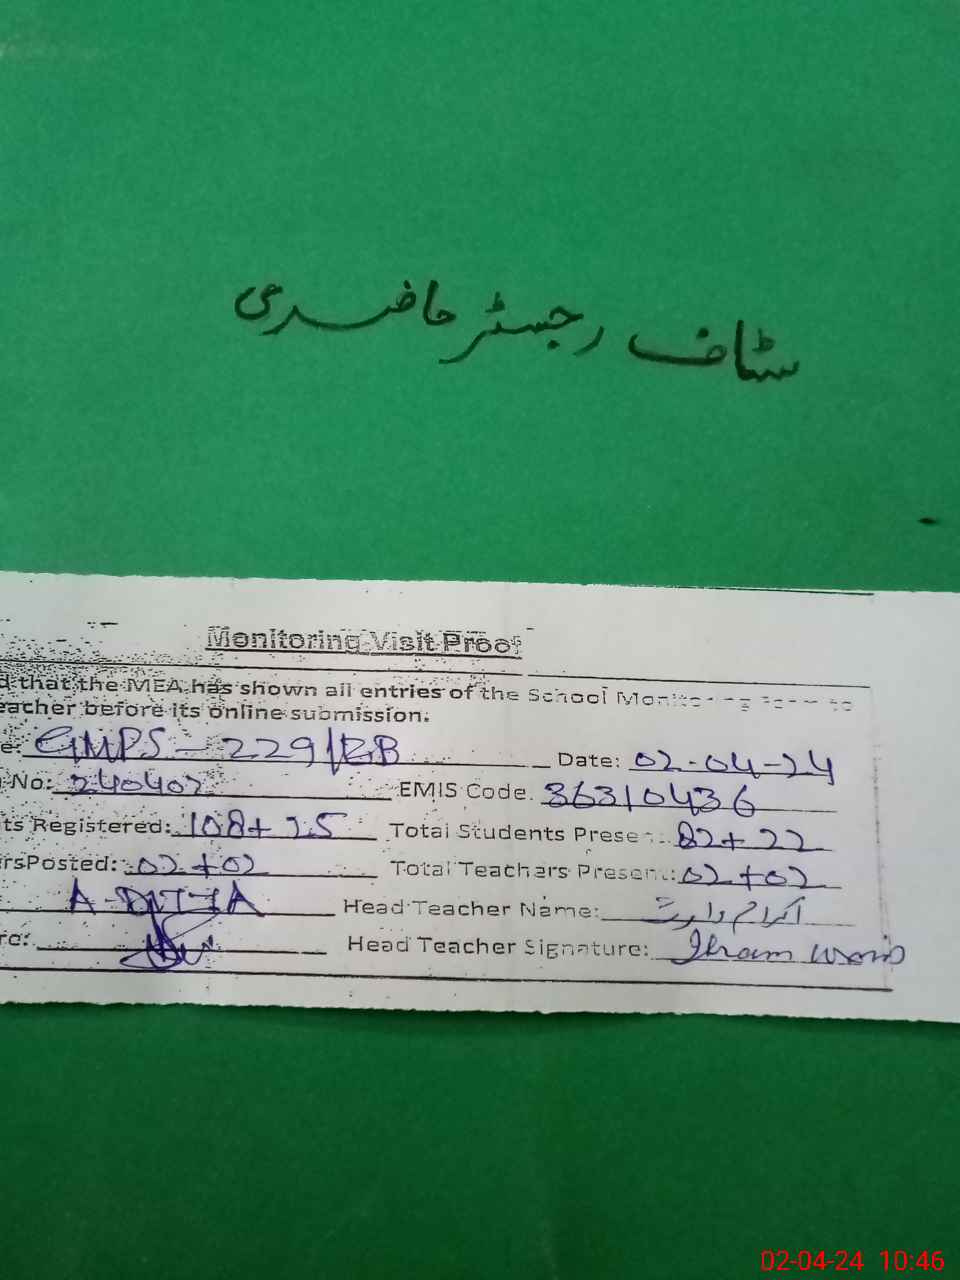 سٹاف رجسٹر حاضری
Monitoring Visit Proof
that the MEA has shown all entries of the School Monitoring Form to
eacher before its online submission.
e: GMPS - 229/RB Date: 02-04-24
No: 240402 EMIS Code. 36310436
ts Registered: 108+25 Total Students Present: 82+22
rsPosted: 02+02 Total Teachers Present: 02+02
Head Teacher Name: اکرام وارث
re: Head Teacher Signature: Ikram Waris
02-04-24 10:46